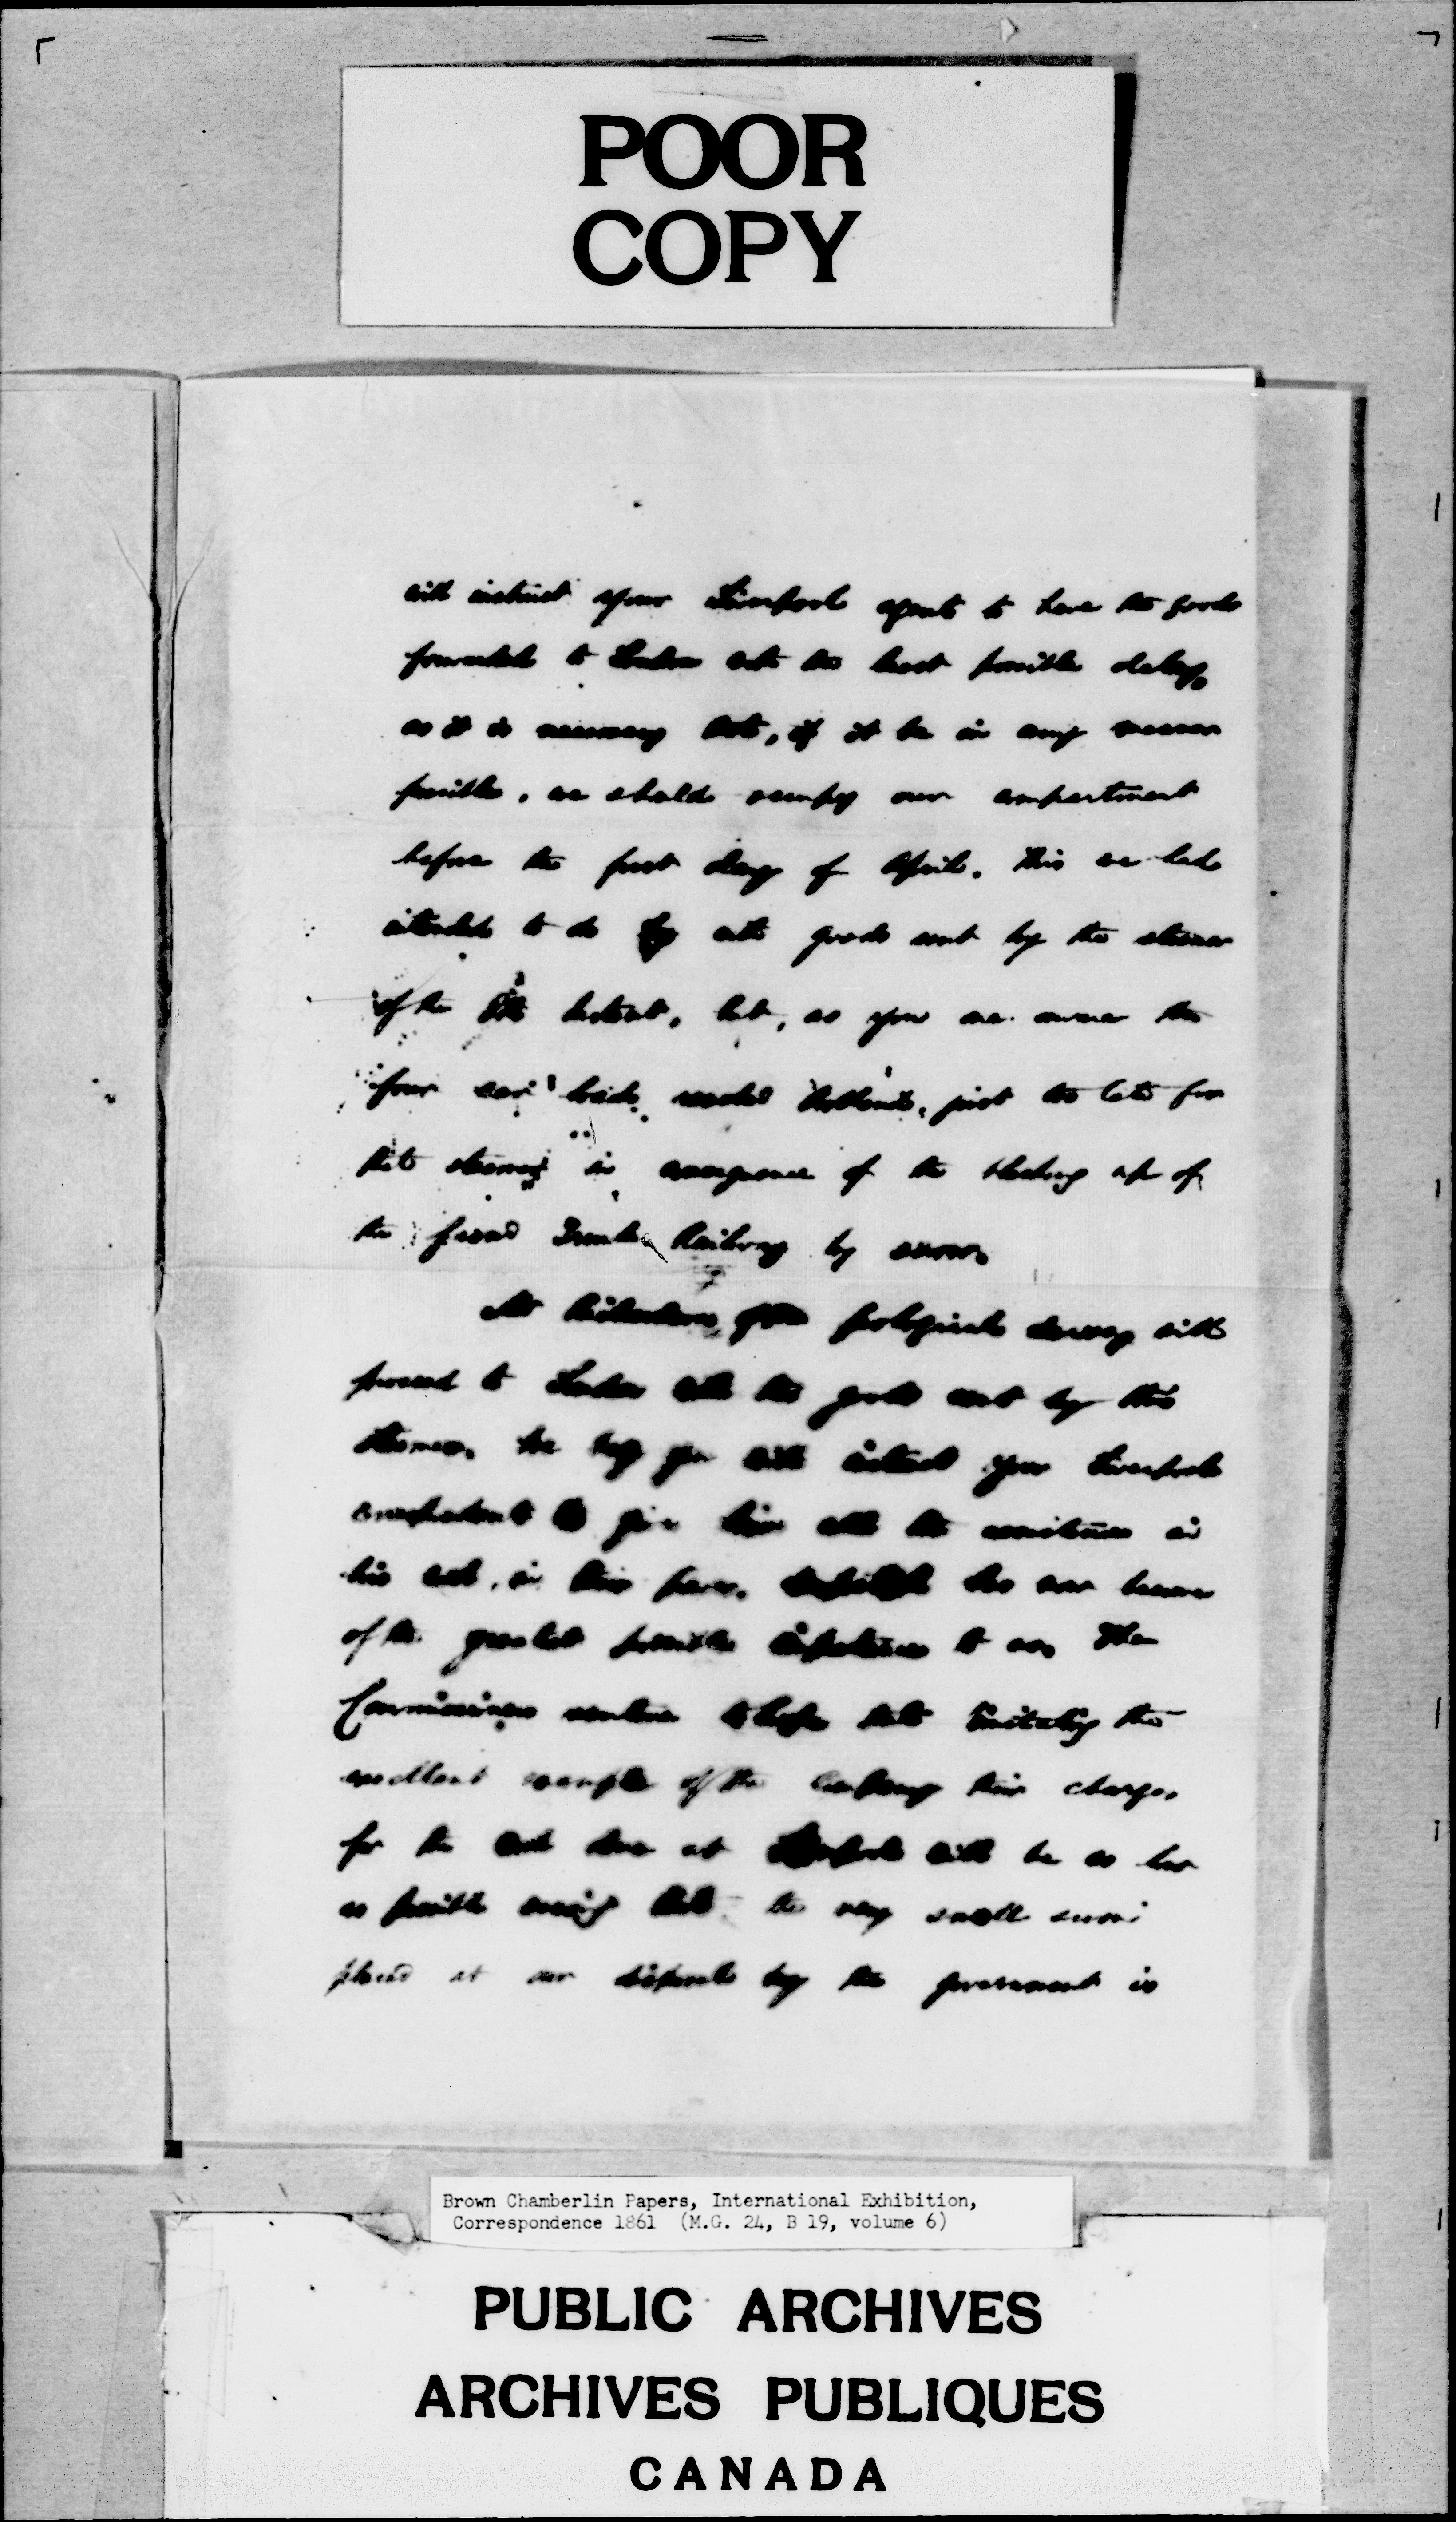 POOR
COPY
will instruct your Liverpool agents to have the goods
forwarded to London with the least possible delay,
as it is necessary that, if it be in any manner
possible, we should occupy our compartment
before the first day of April. This we had
intended to do by with goods sent by the steamer
of the instant, but, as you are aware the
four car loads reached Portland, just too late for
that steamer in consequence of the blocking up of
the Grand Trunk Railway by snow.
Mr Richardson, geological survey will
proceed to London with the goods sent by this
steamer. We beg you will instruct your Liverpool
correspondent to give him all the assistance in
his in his power. has now become
of the greatest possible importance to us. The
Commissioners venture to hope that imitating the
excellent example of the Company their charges
for the work done at Liverpool will be as low
as possible seeing that the very small sum
placed at our disposal by the government is
Brown Chamberlin Papers, International Exhibition,
Correspondence 1861 (M.G. 24, B 19, volume 6)
PUBLIC ARCHIVES
ARCHIVES PUBLIQUES
CANADA